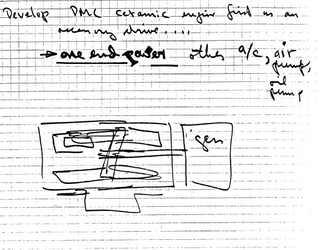 Develop PMC ceramic engine first as an
accessory drive....
→ one end power other a/c, air
pump,
oil
pump
gen